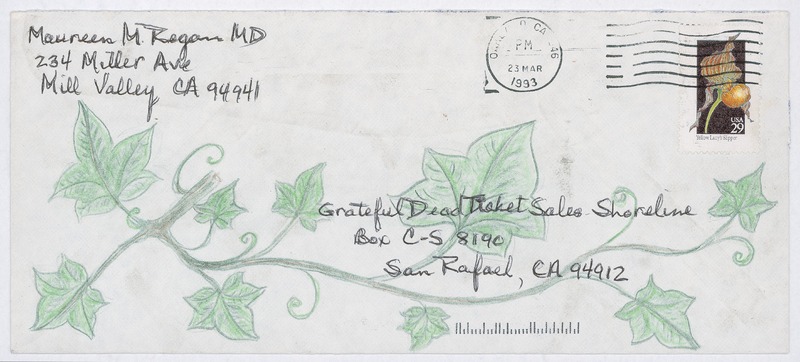 Maureen M. Regan MD
234 Miller Ave
Mill Valley CA 94941
CA 946
PM
23 MAR
1993
USA
29
Yellow Lady's Slipper
Grateful Dead Ticket Sales - Shoreline
Box C-S 8190
San Rafael, CA 94912